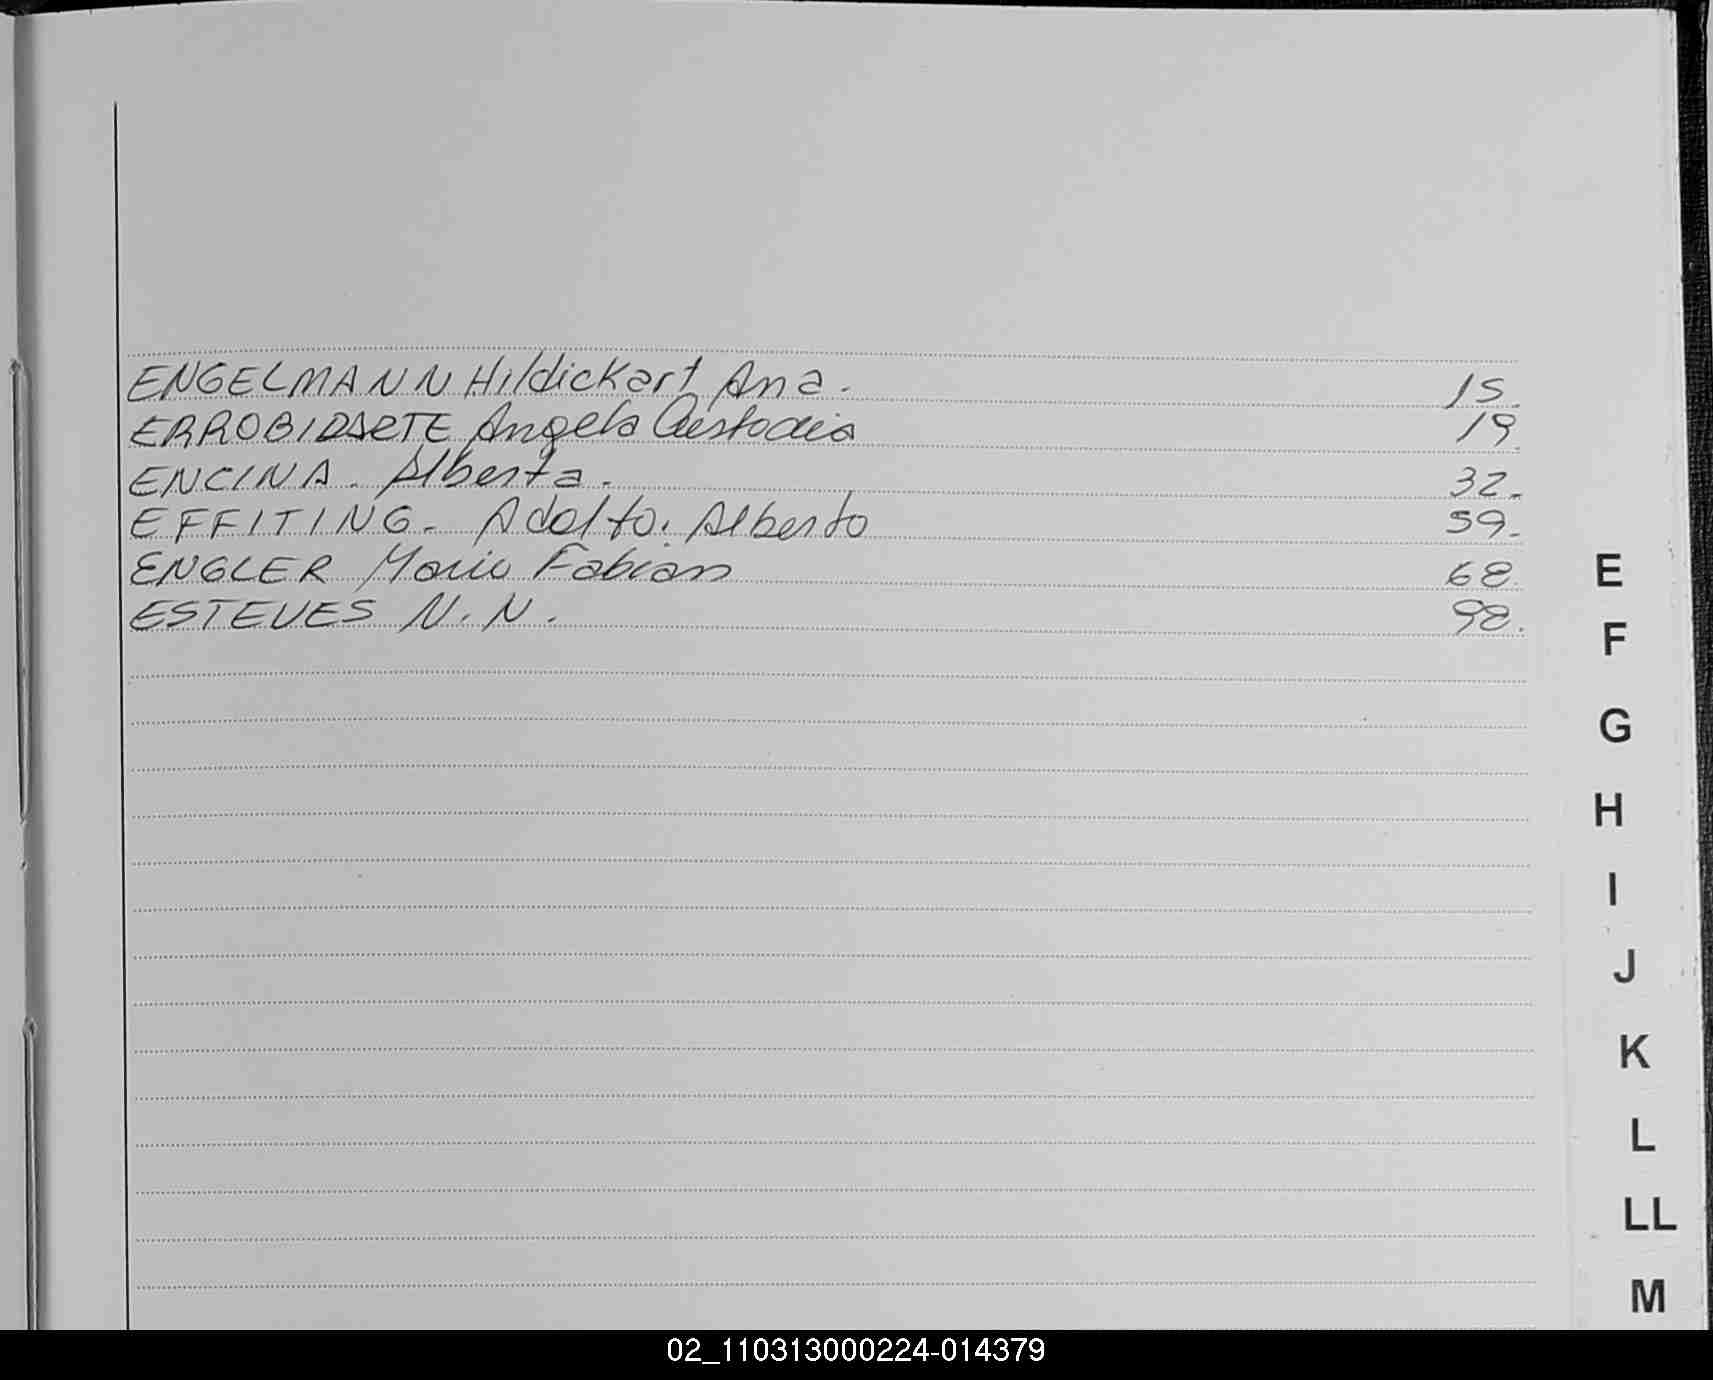 ENGELMANN Hildickart Ana. 15.
ERROBIDARTE Angela Custodia 19.
ENCINA. Alberta. 32.
EFFITING. Adolfo. Alberto 59.
ENGLER Mario Fabian 68.
ESTEVES N.N. 98.
E
F
G
H
I
J
K
L
LL
M
02_110313000224-014379